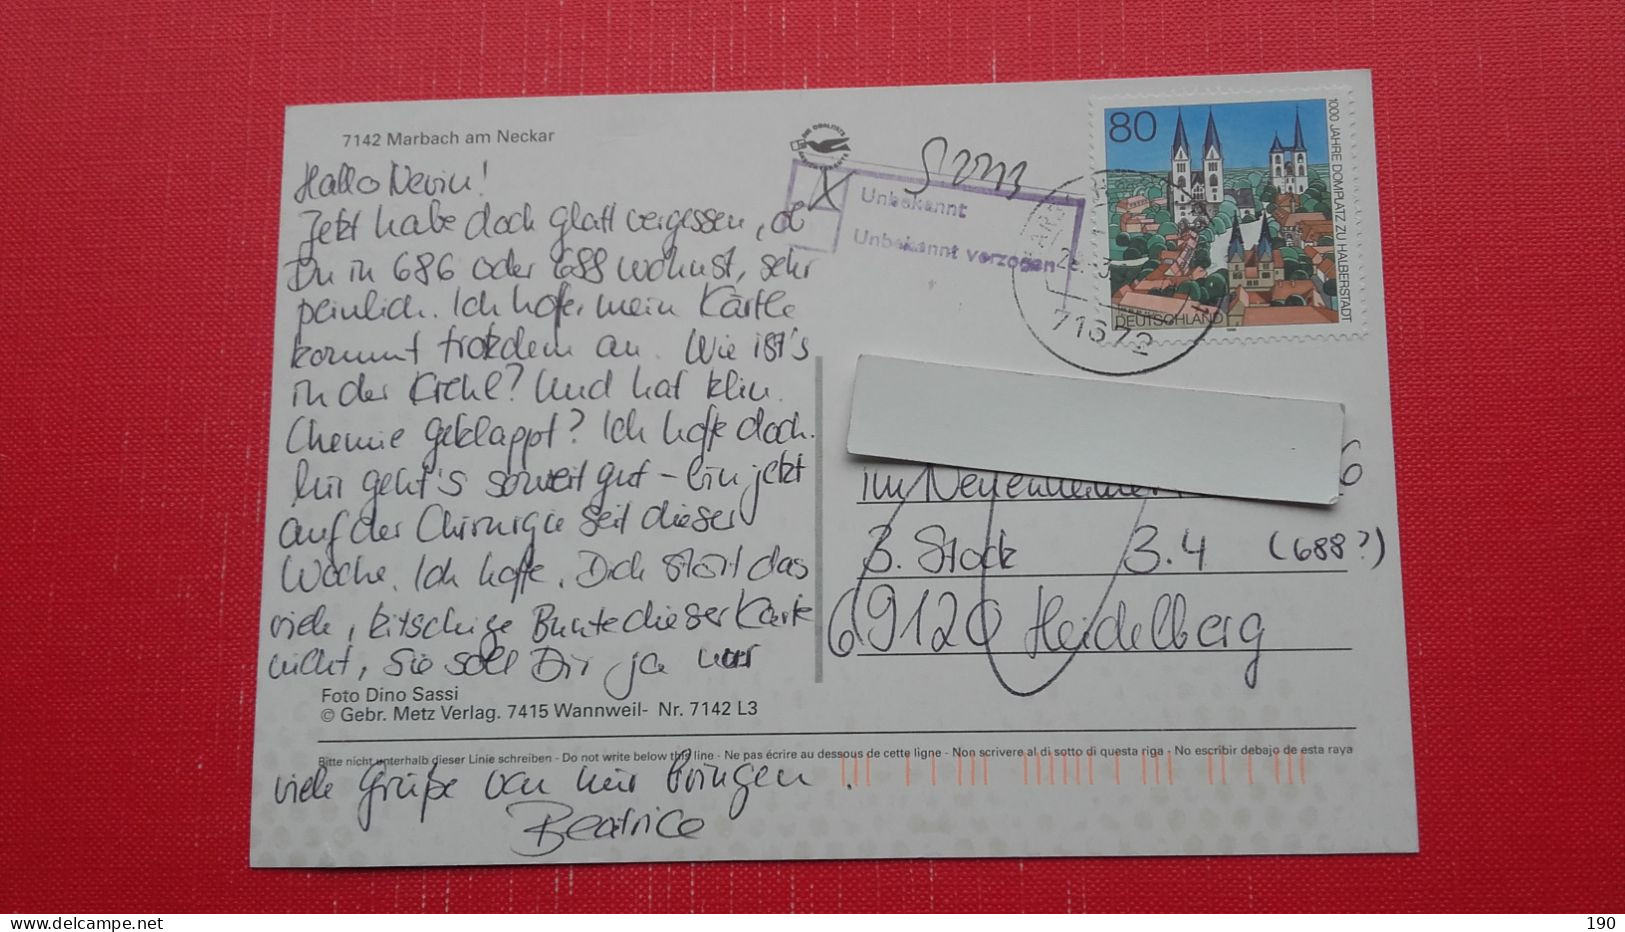 7142 Marbach am Neckar
Hallo Nevin!
Jetzt habe doch glatt vergessen, ob
Du in 686 oder 688 wohnst, sehr
peinlich. Ich hoffe, mein Kärtle
kommt trotzdem an. Wie ist's
in der Küche? Und hat klin.
Chemie geklappt? Ich hoffe doch.
Mir geht's soweit gut – bin jetzt
auf der Chirurgie seit dieser
Woche. Ich hoffe, Dich stört das
viele, kitschige Bunte dieser Karte
nicht, sie soll Dir ja nur
Foto Dino Sassi
© Gebr. Metz Verlag. 7415 Wannweil- Nr. 7142 L3
Bitte nicht unterhalb dieser Linie schreiben - Do not write below this line - Ne pas écrire au dessous de cette ligne - Non scrivere al di sotto di questa riga - No escribir debajo de esta raya
viele Grüße von mir bringen.
Beatrice
X Unbekannt
Unbekannt verzogen
80
1000 JAHRE DOMPLATZ ZU HALBERSTADT
DEUTSCHLAND
71672
im Neuenheimer 6
3. Stock 3.4 (688?)
69120 Heidelberg
delcampe.net
190